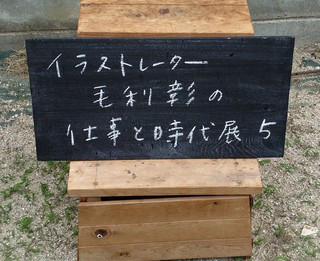 イラストレーター
毛利彰の
仕事と時代展 5